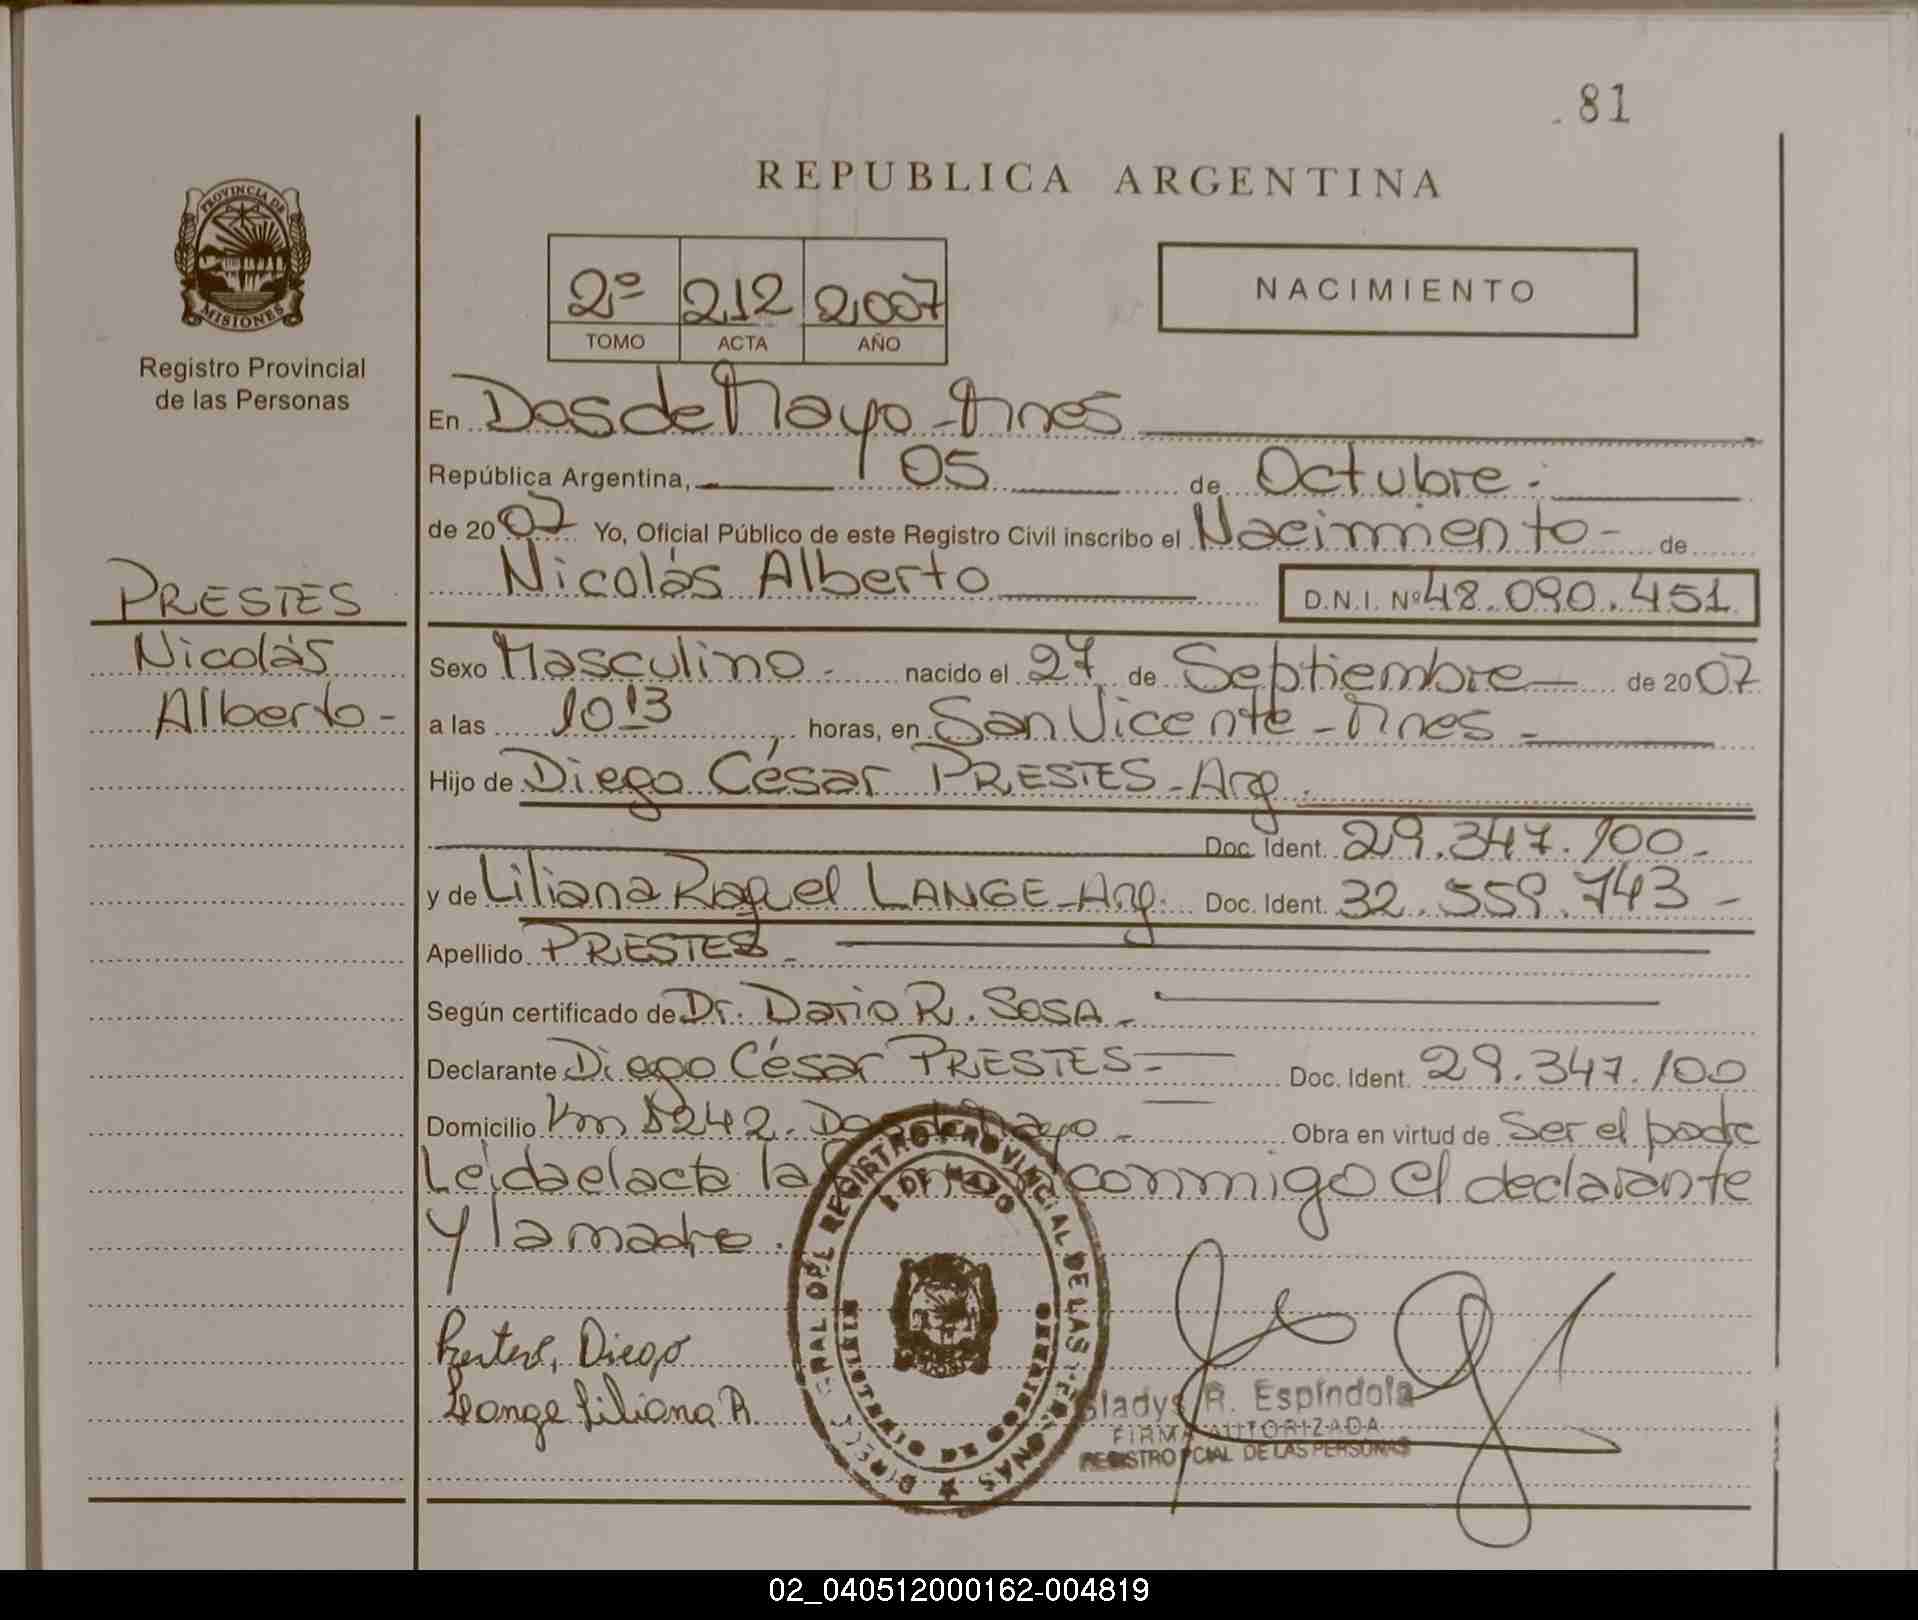 81
REPUBLICA ARGENTINA
PROVINCIA DE
MISIONES
Registro Provincial
de las Personas
2º 212 2.007
TOMO ACTA AÑO
NACIMIENTO
En Dos de Mayo - Mnes
República Argentina, 05 de Octubre.
de 2007 Yo, Oficial Público de este Registro Civil inscribo el Nacimiento - de
Nicolás Alberto D.N.I. Nº 48.090.451
PRESTES
Nicolás
Alberto -
Sexo Masculino - nacido el 27 de Septiembre de 2007
a las 10 13 horas, en San Vicente - Mnes -
Hijo de Diego César PRESTES - Arg.
Doc. Ident. 29.347.100 -
y de Liliana Raquel LANGE - Arg. Doc. Ident. 32.559.743 -
Apellido PRESTES -
Según certificado de Dr. Dario R. SOSA -
Declarante Diego César PRESTES - Doc. Ident. 29.347.100
Domicilio Km 242 - Dos de Mayo - Obra en virtud de Ser el padre
Leida el acta la conmigo el declarante
y la madre.
Prestes, Diego
Lange Liliana R.
REGISTRO PROVINCIAL DE LAS PERSONAS
DE MAYO
Gladys R. Espíndola
FIRMA AUTORIZADA
REGISTRO PCIAL DE LAS PERSONAS
02_040512000162-004819